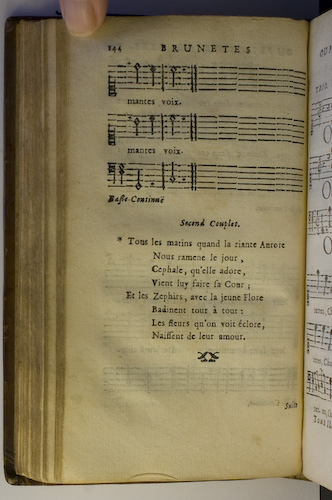 144 BRUNETES
mantes voix.
mantes voix.
Basse-Continuë
Second Couplet.
* Tous les matins quand la riante Aurore
Nous ramene le jour,
Cephale, qu'elle adore,
Vient luy faire sa Cour;
Et les Zephirs, avec la jeune Flore
Badinent tout à tour:
Les fleurs qu'on voit éclore,
Naissent de leur amour.
Suite